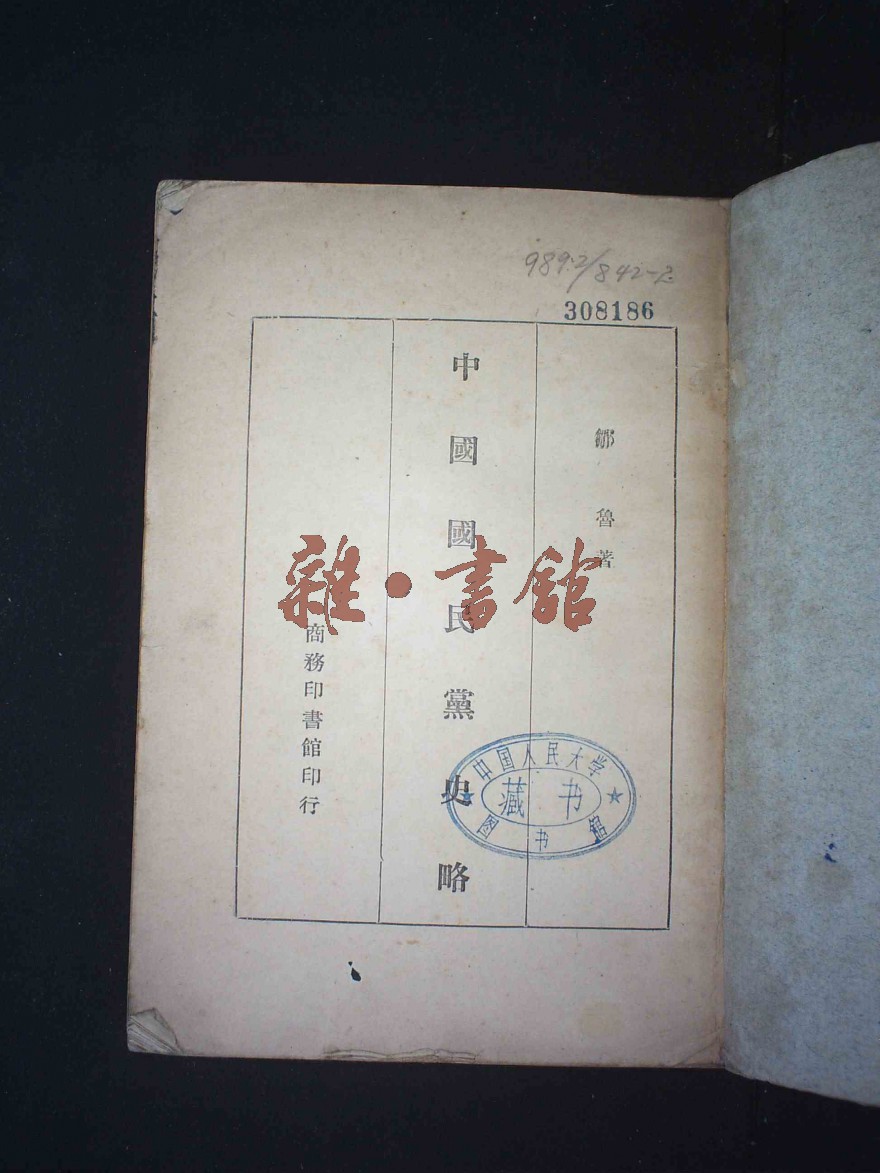 989.2/842-2
308186
鄒魯著
中國國民黨史略
商務印書館印行
雜·書館
中国人民大学
藏书
图书馆